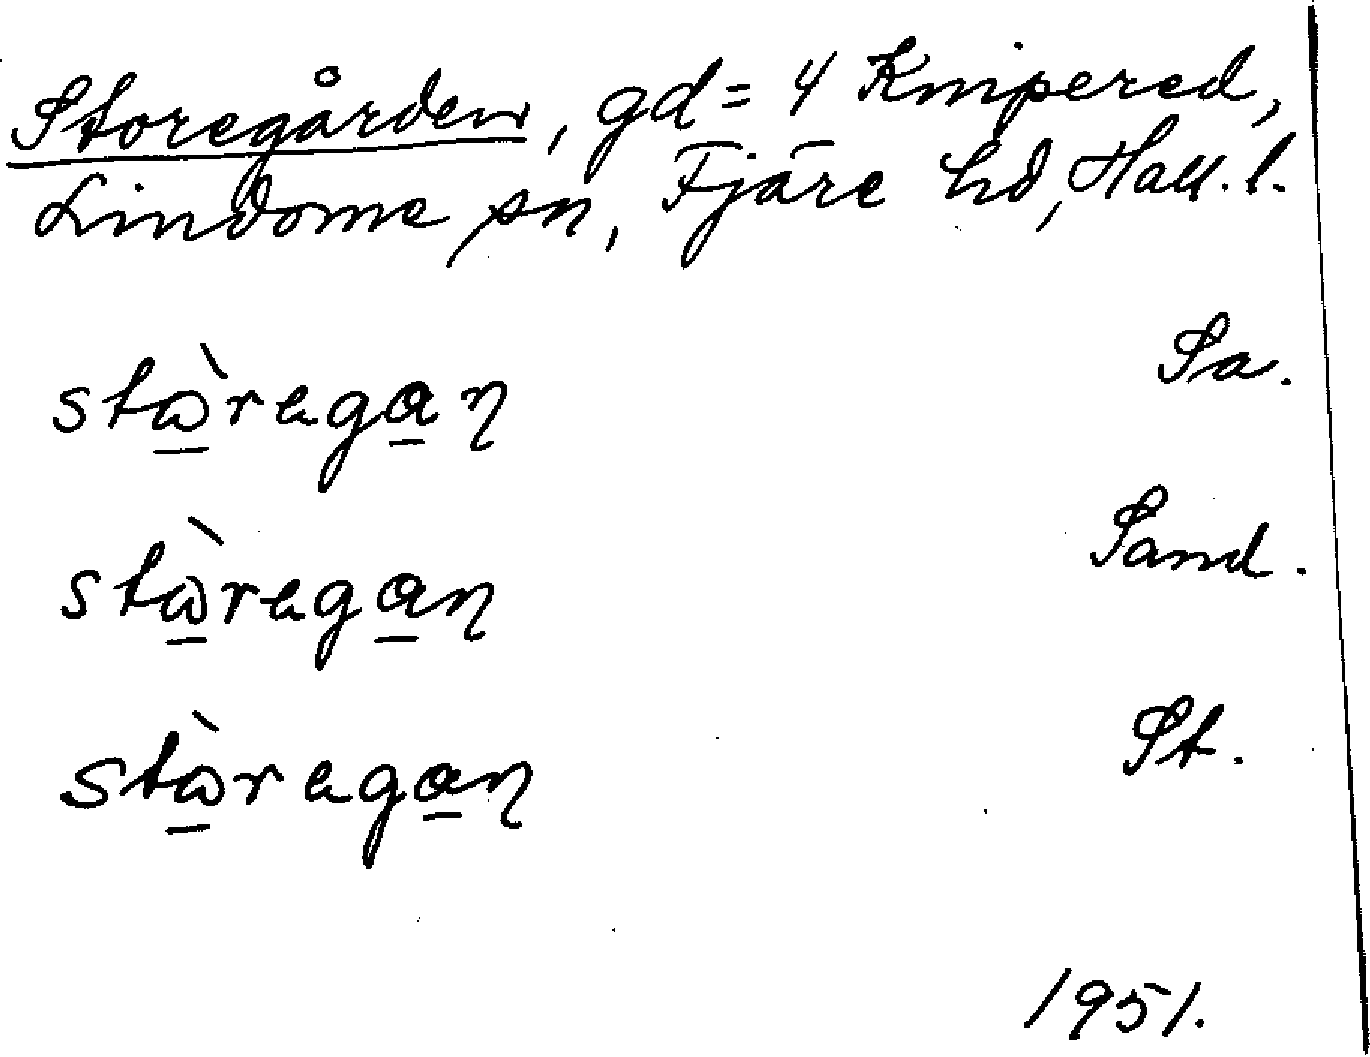 Storegården, gd = 4 Knipered,
Lindome sn, Fjäre hd, Hall. l.
stɷ̀regaɳ Sa.
stɷ̀regaɳ Sand.
stɷ̀regaɳ St.
1951.